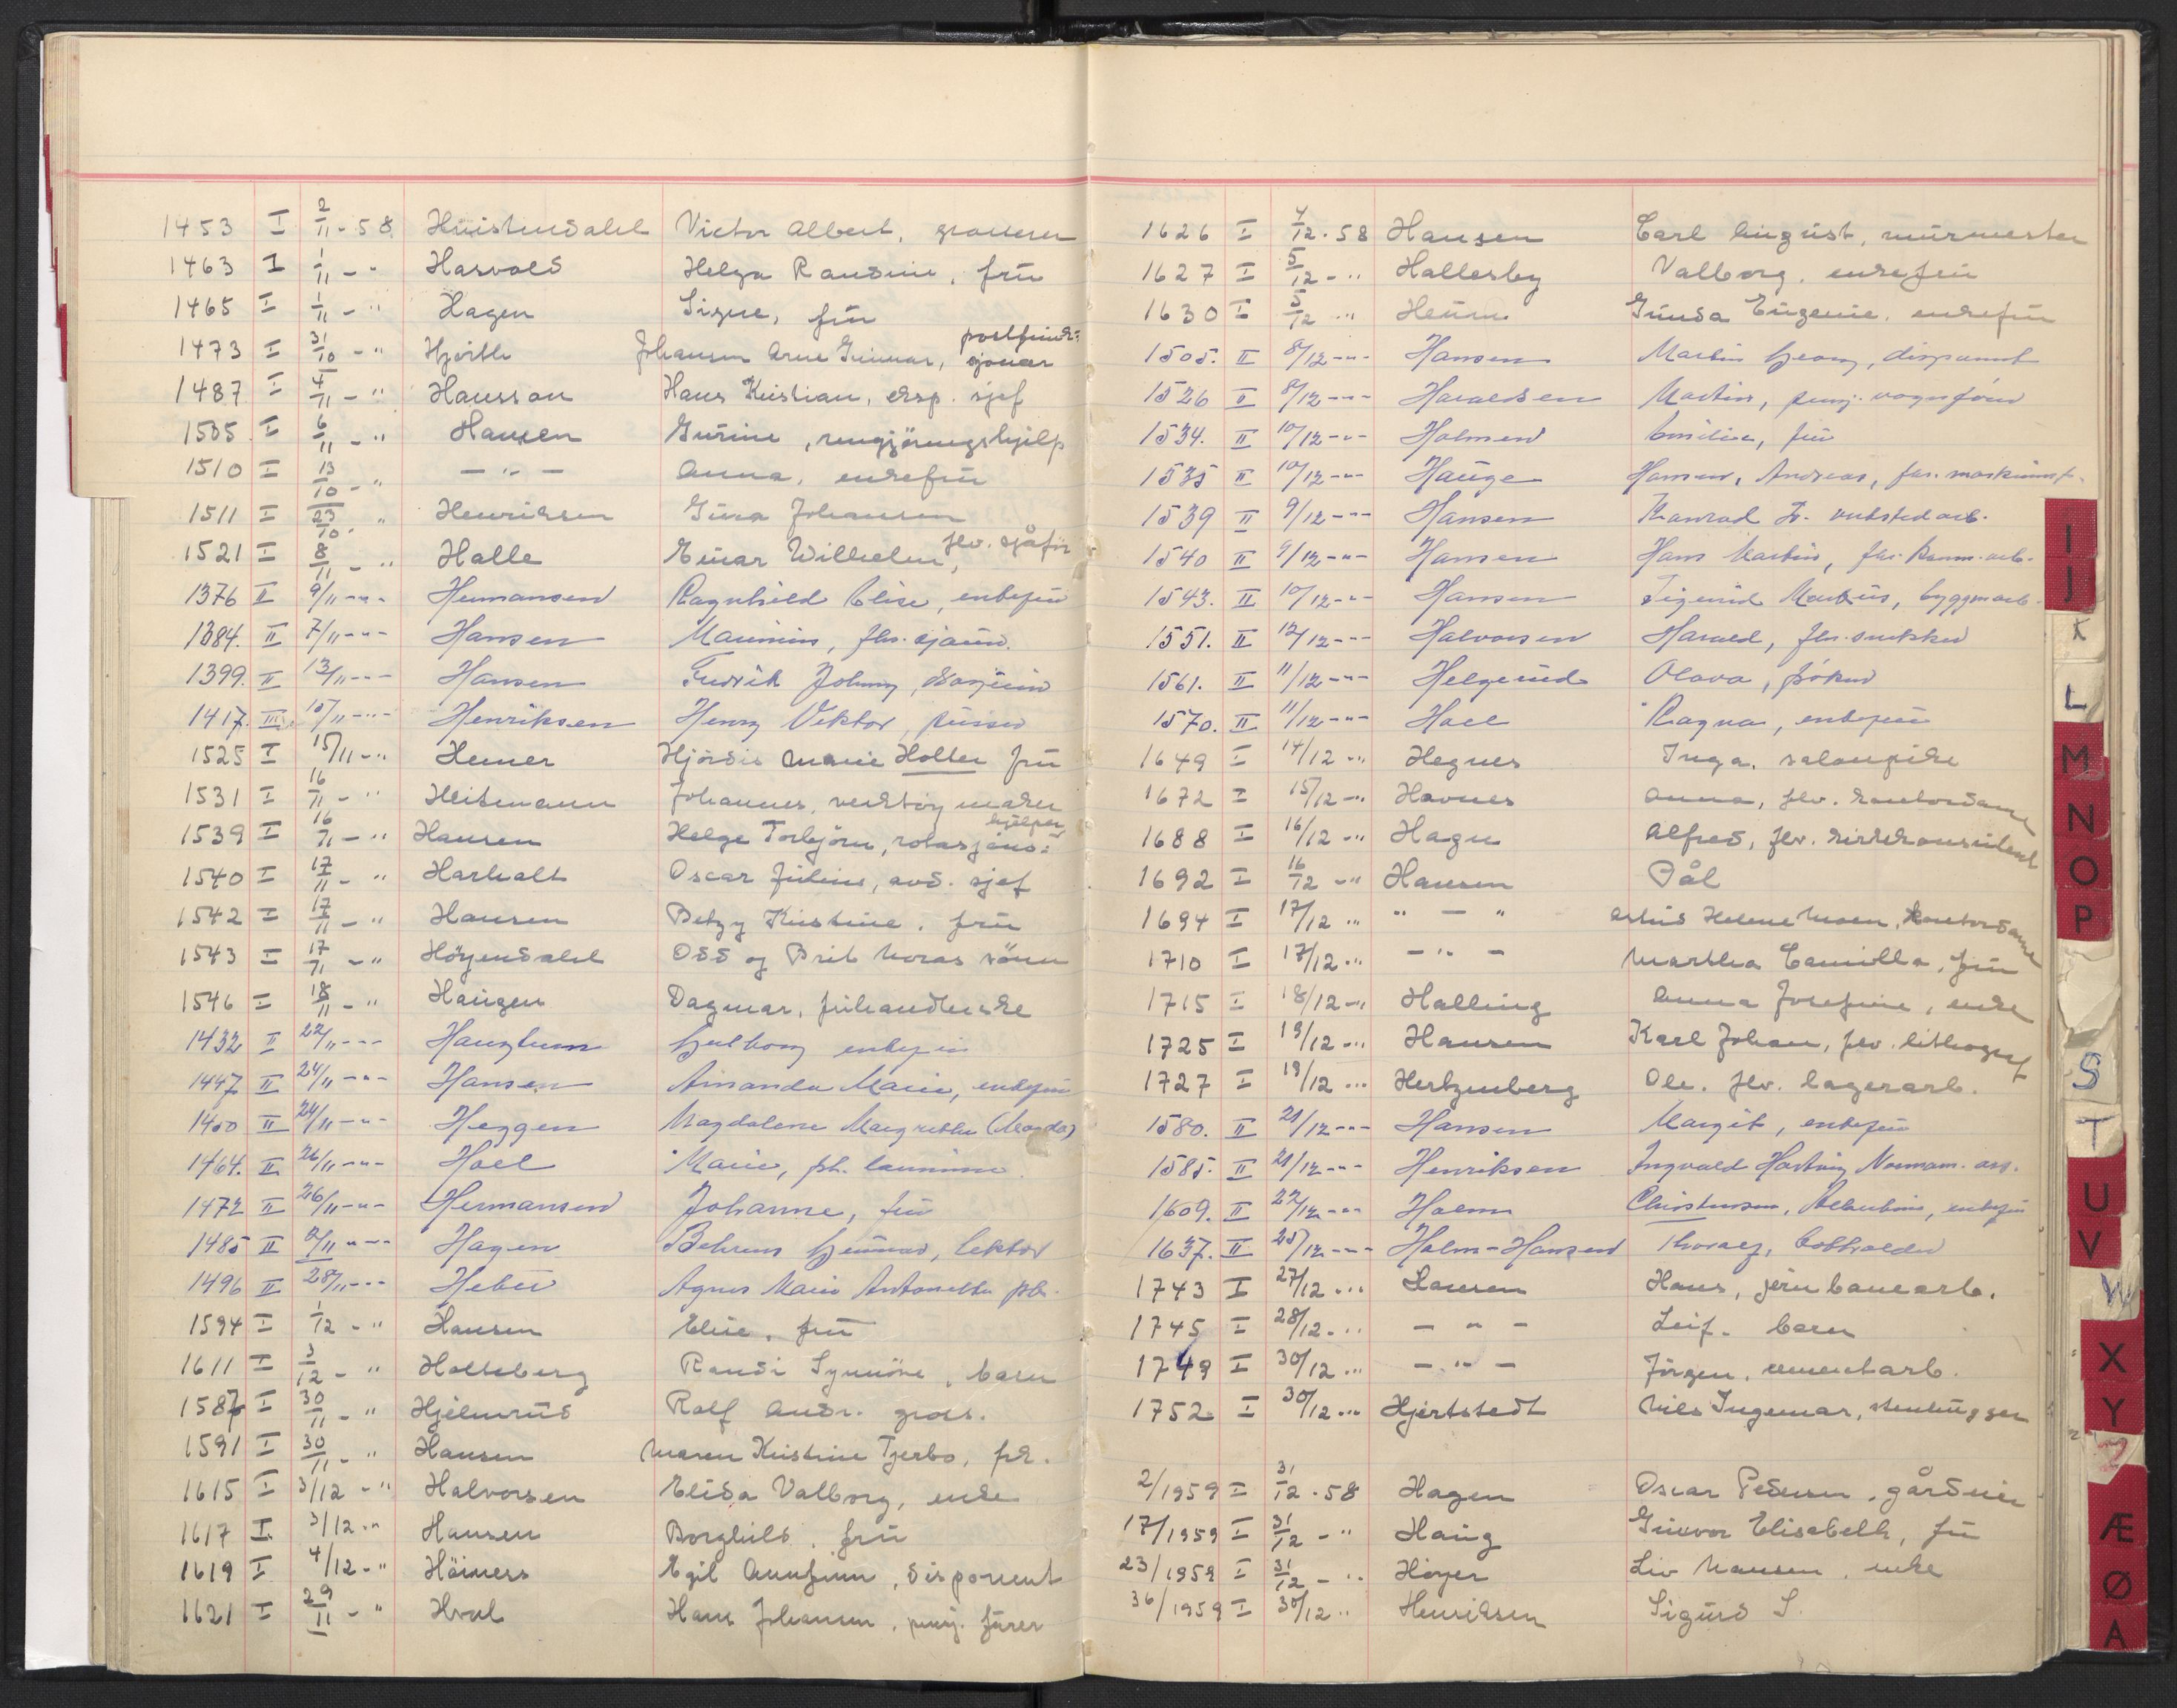 1453 I 2/11-58 Huistendahl Victor Albert, grosserer
1463 I 1/11-" Harvold Helga Randine, frü
1465 I 1/11-" Hagen Signe, frü
1473 I 31/10-" Hjorth Johansen Arne Gunnar, postfunk=sjonær
1487 I 4/11-" Hansson Hans Kristian, eksp. sjef
1505 I 6/11-" Hansen Gurine, rengjöringshjelp
1510 I 13/10-" -"- Anna, enkefrü
1511 I 23/10-" Henriksen Gina Johansen
1521 I 8/11-" Halle Einar Wilhelm, flv. sjåför
1376 II 9/11-"- Hermansen Ragnhild Elise, enkefrü
1384. II 7/11-"- Hansen Maurinius, fhv. sjauer.
1399. II 13/11-"- Hansen Fredrik Johnny
1417. III 15/11-"- Henriksen Henry Viktor, pusser
1525 I 15/11-" Hemer Hjördis Marie Holter frü
1531 I 16/11-" Heitmann Johannes, verktöymaker
1539 I 16/11-" Hansen Helge Torbjörn, rotasjons=hjelper
1540 I 17/11-" Harholt Oscar Julius, avd. sjef
1542 I 17/11-" Hansen Betzy Kristine, frü
1543 I 17/11-" Höyendahl Odd og Brit Moras sönn
1546 I 18/11-" Haugen Dagmar, fruhandlerske
1432 II 22/11-"- enkefrü
1447 II 24/11-"- Hansen Amanda Marie, enkefrü
1450 II 24/11-"- Heggen Magdalene Margrethe (Magda)
1464. II 26/11-"- Hoel Marie, pl. lærerinne
1472 II 26/11-"- Hermansen Johanne, frü
1485 II 2/11-"- Hagen Behrens Gunnar, lektor
1496 II 28/11-"- Heber Agnes Marie Antonette
1594 I 1/12-" Hansen Elise, frü
1611 I 3/12-" Holteberg Randi Synnöve, barn
1587 I 30/11-" Hjelmrud Rolf Andr. gross.
1591 I 30/11-" Hansen Maren Kristine Tjerbo, frk.
1615 I 3/12-" Halvorsen Elida Valborg, enke
1617 I 3/12-" Hansen Borghild, frü
1619 I 4/12-" Höiners Egil Annfinn, disponent
1621 I 29/11-" Hval Hans Johansen, pensj. fürer
1626 I 4/12-58 Hansen Carl August, murmester
1627 I 5/12-" Hallesby Valborg, enkefrü
1630 I 5/12-" Heum Gunda Eugenie, enkefrü
1505. II 8/12-"- Hansen Martin Georg, disponent
1526 II 8/12-"- Haraldsen Martin, pensj. vognförer
1534. II 10/12-"- Holmen Emilie, frü
1535 II 10/12-"- Hauge Hansen, Andreas, fhv. maskinist
1539 II 9/12-"- Hansen Konrad verkstedarb.
1540 II 9/12-"- Hansen Hans Martin, fhv. komm. arb.
1543. II 10/12-"- Hansen Sigurd Markus, byggm arb.
1551. II 12/12-"- Halvorsen Harald, fhv. snekker
1561. II 11/12-"- Helgerud Olava, fröken
1570. II 11/12-"- Hoel Ragna, enkefrü
1649 I 14/12-" Hegnes Inga, salongpike
1672 I 15/12-" Havnes Anna, flv. kontordame
1688 I 16/12-" Hagen Alfred, flv. kirkekonsulent
1692 I 16/12-" Hansen Pål
1694 I 17/12-" "-" Astrid Helene Moen, kontordame
1710 I 17/12-" -"- Martha Camilla, frü
1715 I 18/12-" Halling Anna Josefine, enke
1725 I 19/12-" Hansen Karl Johan, flv. lithograf
1727 I 19/12-" Hertzenberg Ole. flv. lagerarb.
1580. II 21/12-"- Hansen Margit, enkefrü
1585. II 21/12-"- Henriksen Ingvald Hartvig Normann. ass.
1609. II 22/12-"- Holm Christensen, Albertine, enkefrü
1637. II 25/12-"- Holm-Hansen Thoralf, bokholder
1743 I 27/12-" Hansen Hans, jernbanearb.
1745 I 28/12-" -"- Leif. barn
1749 I 30/12-" -"- Jörgen, sementarb.
1752 I 30/12-" Hjertstedt Nils Ingemar, stenhugger
2/1959 I 31/12-58 Hagen Oscar Pedersen, gårdeier
17/1959 I 31/12-" Haug Gunvor Elisabeth, frü
23/1959 I 31/12-" Höyer Liv Hansen, enke
36/1959 I 30/12-" Henriksen Sigurd S.
I
J
K
L
M
N
O
P
S
T
U
V
W
X
Y
Z
Æ
Ø
A